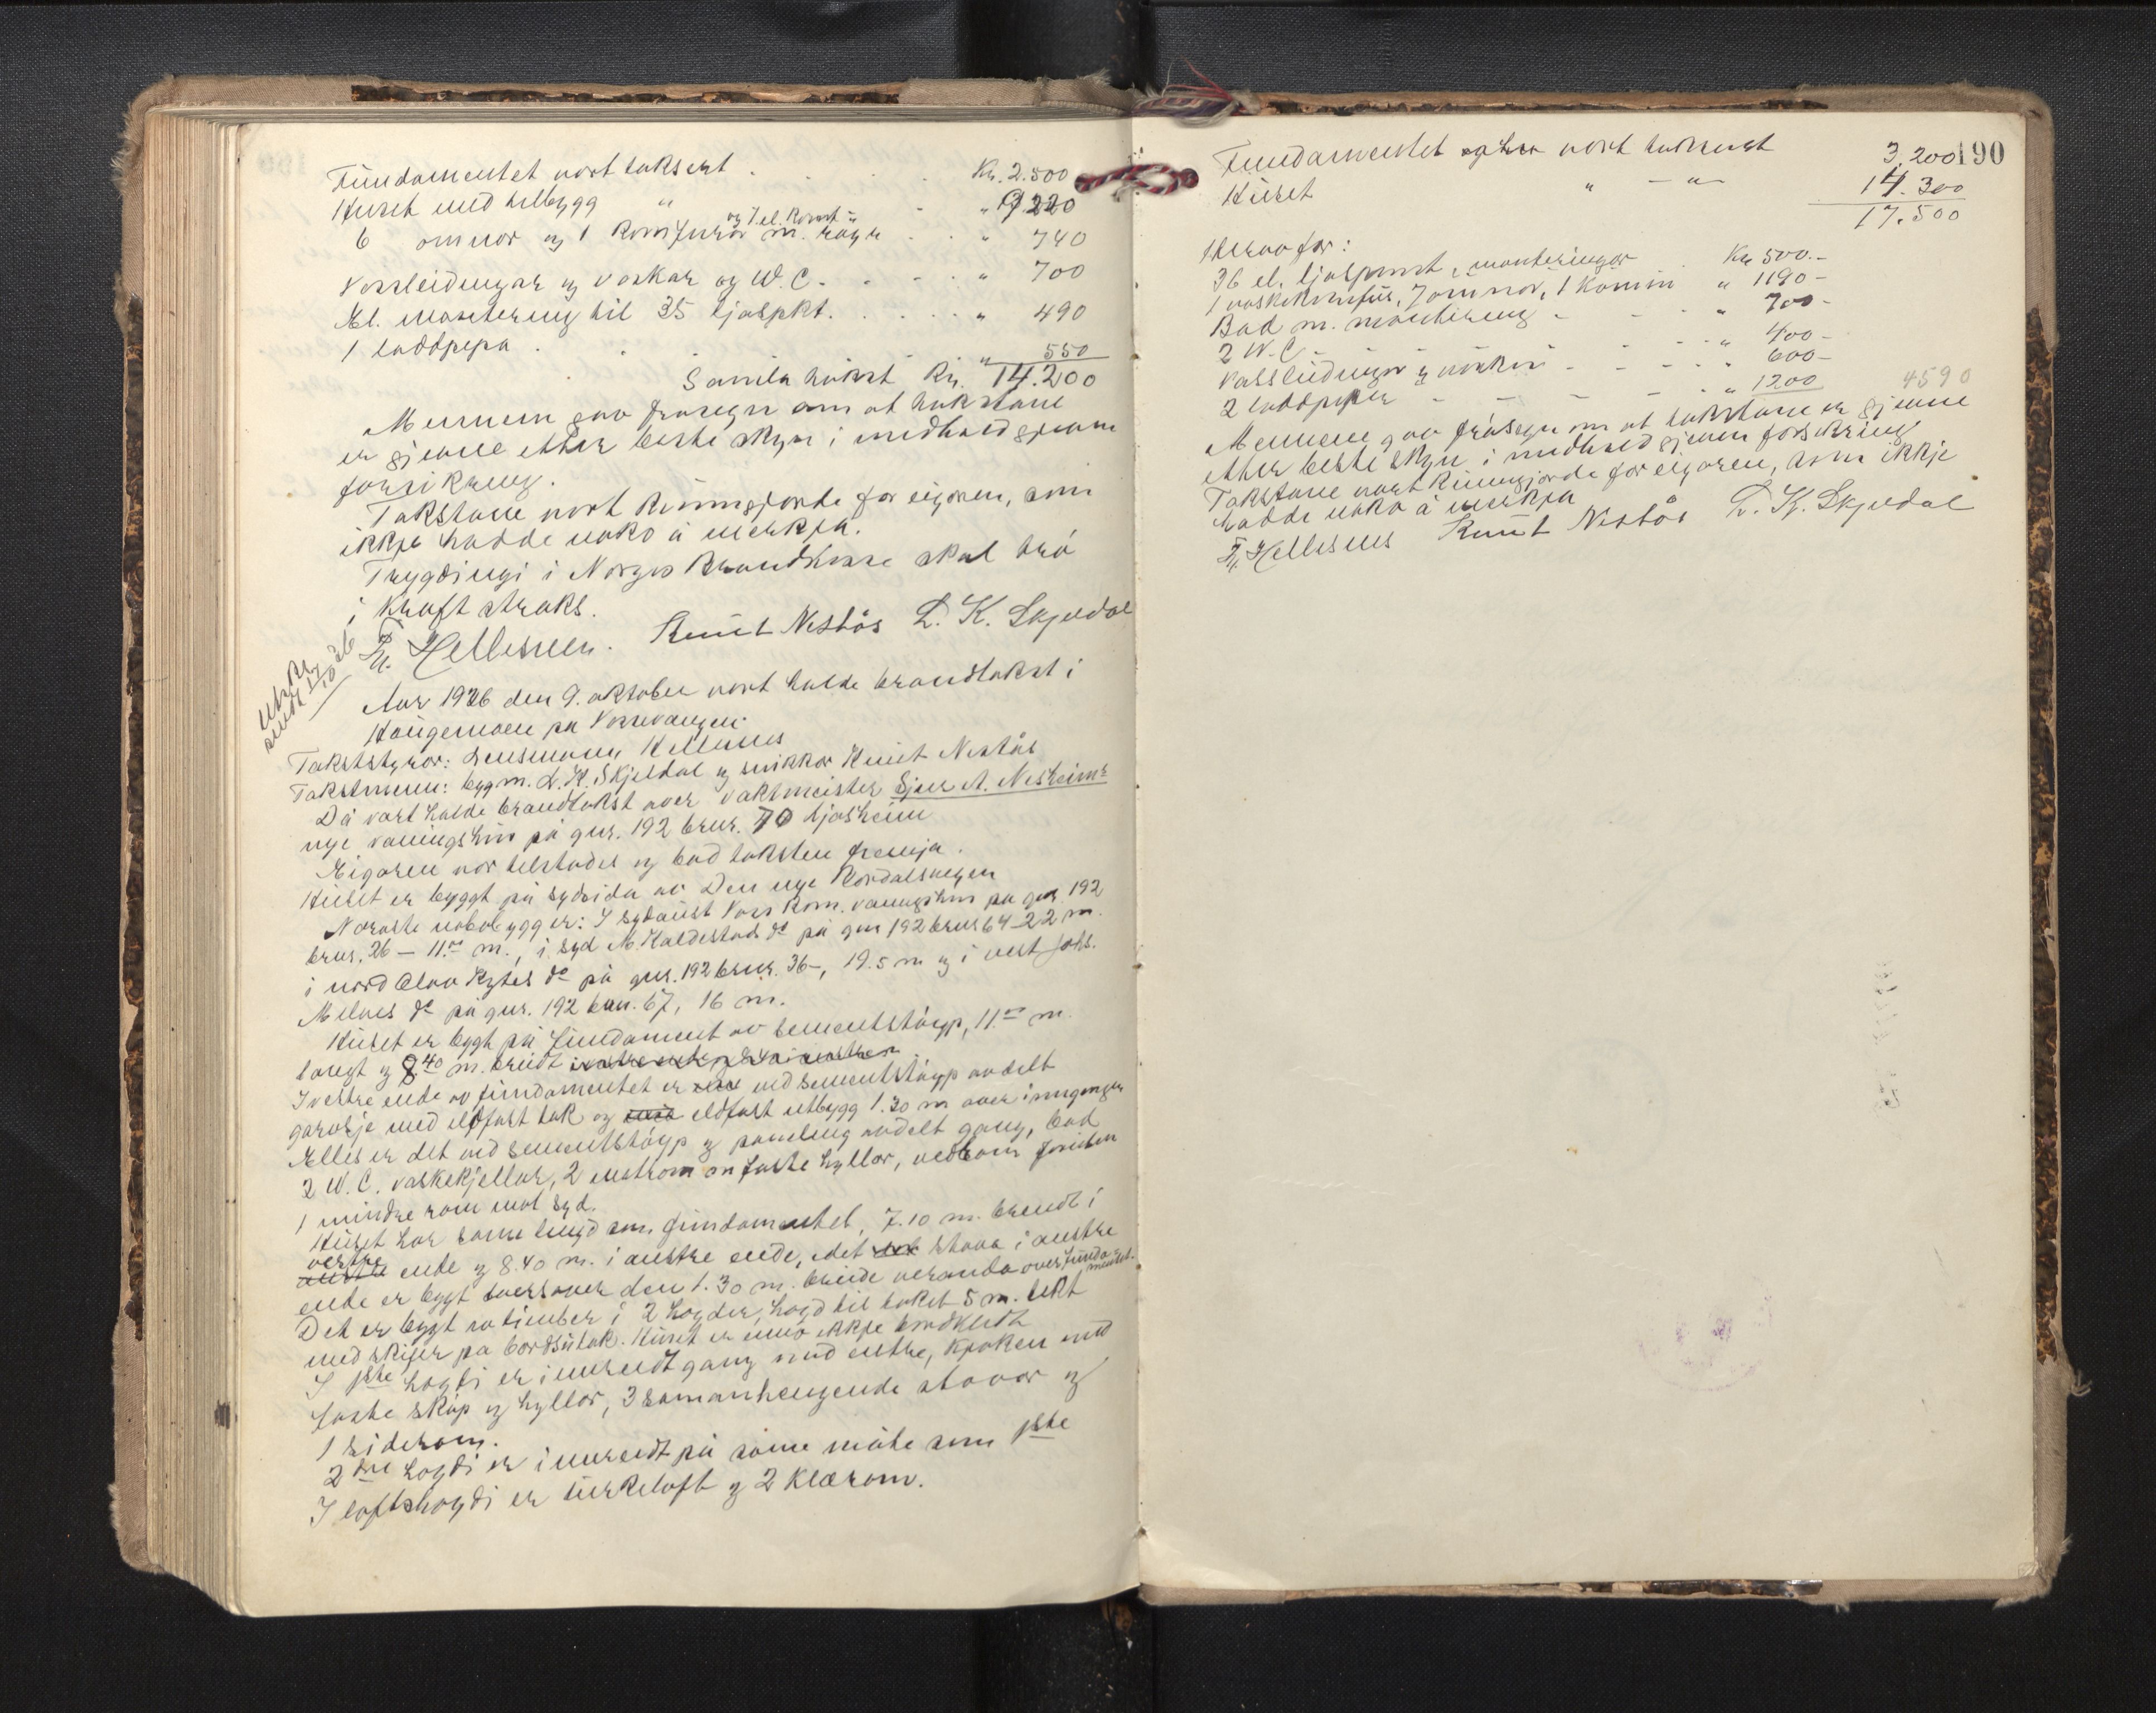 Fundamentet vort taksert . . . . Kr. 2.500
Huset med tilbygg " - " 9220
og 1 el. komf-
6 omnar og 1 komfurar m. røyr . . " 740
Vassleidningar og vaskar og W.C. . . . " 700
El. montering til 35 ljospkt. . . . . " 490
1 loddpipa . . . " 550
Samla takst Kr. 14.200
Mennene gav fråsegn om at takstane
er gjevne etter beste skyn i medhald gjevne
forsikring.
Takstane vort kunngjorde for eigaren, som
ikkje hadde noko å merkja.
Trygdingi i Norges Brandkasse skal trå
i kraft straks.
Fr. Hellesnes. Knut Nestås L. K. Skjeldal
Utskr.
sendt 27/10 26
Aar 1926 den 9. oktober vort halde brandtakst i
Haugamoen på Vossevangen.
Takststyrar: Lensmann Hellesnes
Takstmenn: bygm. L. K. Skjeldal og snikkar Knut Nestås
Då vart halde brandtakst over vaktmeister Sjur A. Nesheims
nye våningshus på gnr. 192 brnr. 70 Ljosheim
Eigaren var tilstades og bad taksten fremja.
Huset er byggt på sydsida av Den nye Rordalsvegen
Næraste nabobygg er: I sydaust Voss kom. våningshus på gnr. 192
brnr. 26 — 11.00 m., i syd M. Haldestads do på gnr 192 brnr 64 - 22 m.
i nord Olav Rytes do på gnr. 192 brnr. 36 -, 19.5 m og i vest Johs.
Melnes do på gnr. 192 brnr. 67, 16 m.
Huset er bygt på fundament av sementstøyp, 11.00 m.
langt og 8.40 m. breidt
I vestre ende av fundamentet er med sementstøyp avdelt
garasje med eldfast tak og eldfast utbygg 1.30 m over inngangen
Elles er det med sementstøyp og paneling avdelt gang, bad
2 W.C. vaskekjellar, 2 matrom m faste hyllor, vedrom foruten
1 mindre rom mot syd.
Huset har same lengd som fundamentet, 7.10 m. breidt i
vestre
austre ende og 8.40 m. i austre ende, idet stova i austre
ende er bygt tversover den 1.30 m. breide veranda over funda-
mentet.
Det er bygt av timber i 2 høgder, høgd til taket 5 m. tekt
med skifer på bordsutak. Huset er enno ikkje bordkledt
I 1ste høgdi er innreidt gang med entre, kjøken med
faste skåp og hyllor, 3 samanhengende stovor og
1 siderom.
2dre høgdi er innreidt på same måte som 1ste
I loftshøgdi er turkeloft og 2 klærom.
190
Fundamentet vort taksert 3.200
Huset " - " - 14.300
17.500
Herav for:
36 el. ljospunkt, monteringar . Kr 500.-
1 vaskekomfur, 7 omnar, 1 kamin " 1190-
Bad m. montering - - - " 700-
2 W.C. - - - " 400-
Vassleidningar og vaskar - - - - 600-
2 loddpiper - - - - " 1200 4590
Mennene gav fråsegn om at takstane er gjevne
etter beste skyn i medhald gjevne forsikring
Takstane vart kunngjorde for eigaren, som ikkje
hadde noko å merkja
Fr. Hellesnes Knut Nestås L. K. Skjeldal